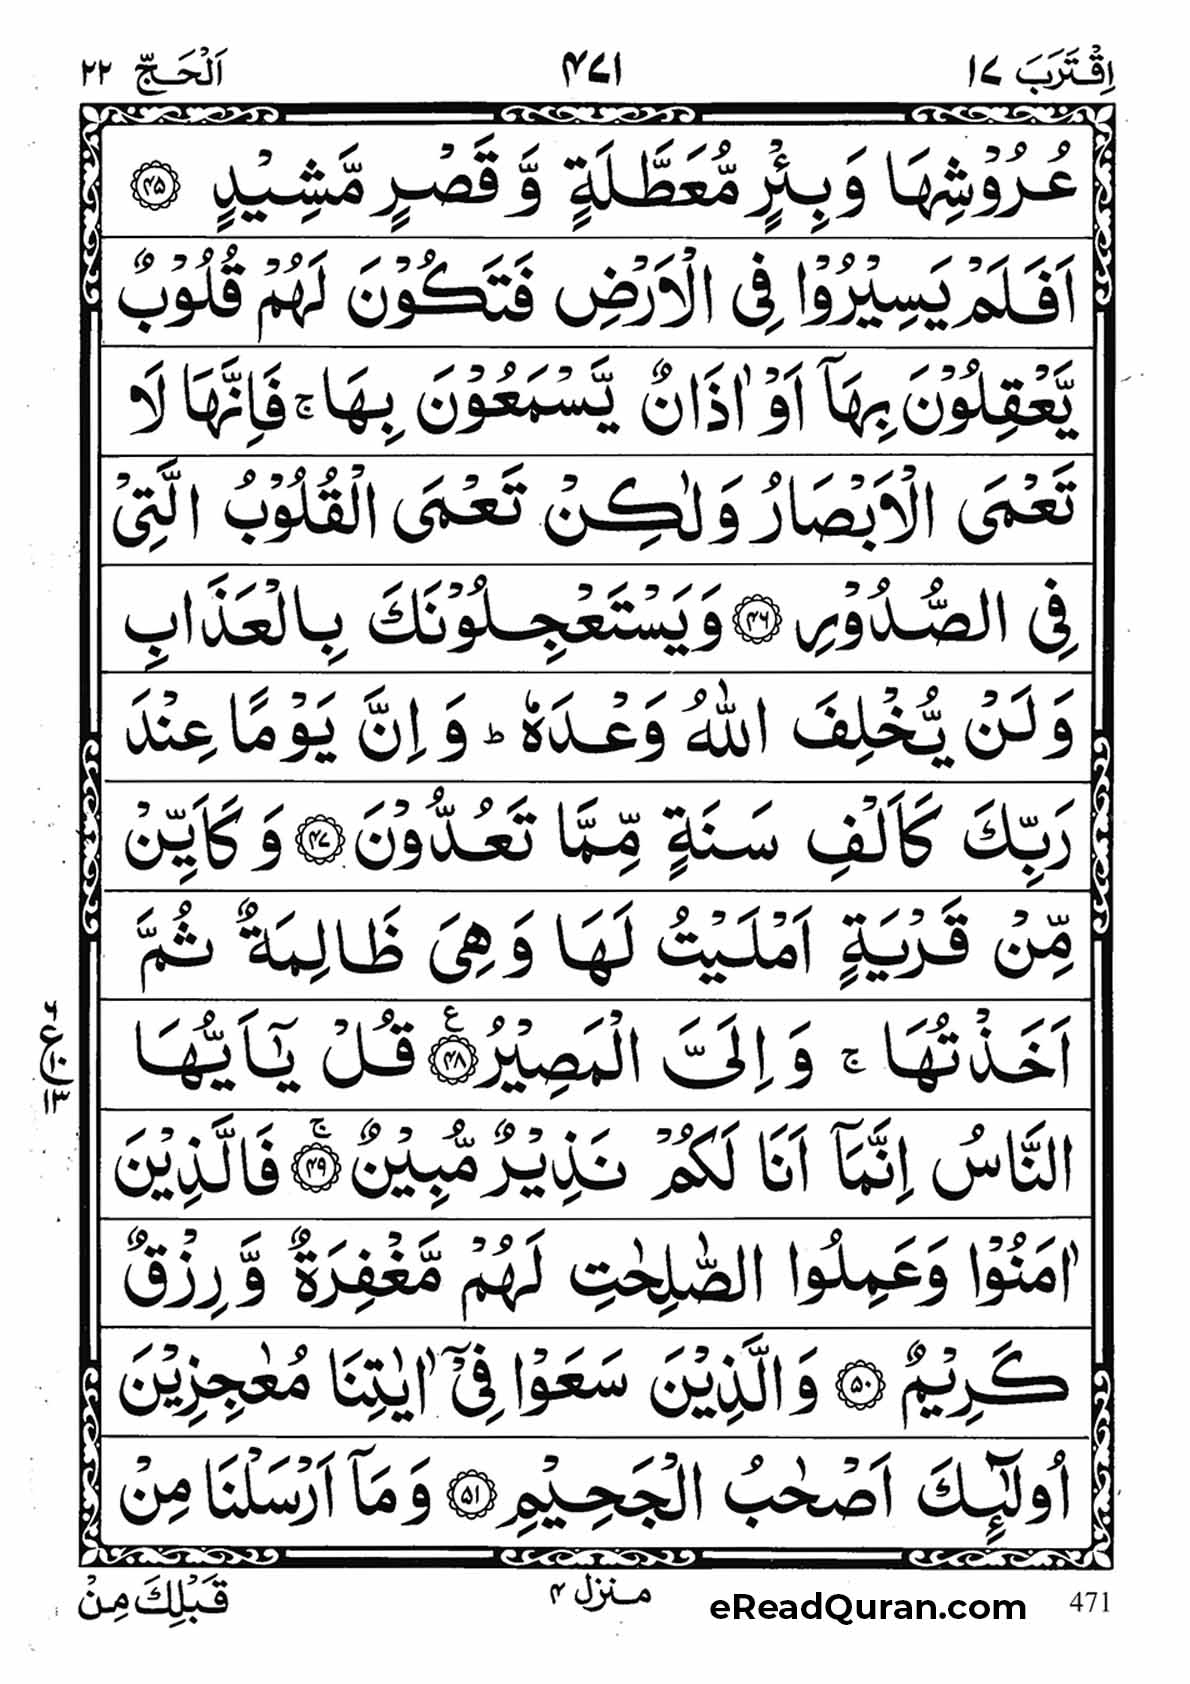 اِقْتَرَبَ ١٧ ٤٧١ اَلْحَجّ ٢٢
عُرُوْشِهَا وَ بِئْرٍ مُّعَطَّلَةٍ وَّ قَصْرٍ مَّشِيْدٍ ۝٤٥
اَفَلَمْ يَسِيْرُوْا فِى الْاَرْضِ فَتَكُوْنَ لَهُمْ قُلُوْبٌ
يَّعْقِلُوْنَ بِهَاۤ اَوْ اٰذَانٌ يَّسْمَعُوْنَ بِهَا ۚ فَاِنَّهَا لَا
تَعْمَى الْاَبْصَارُ وَلٰكِنْ تَعْمَى الْقُلُوْبُ الَّتِىْ
فِى الصُّدُوْرِ ۝٤٦ وَيَسْتَعْجِلُوْنَكَ بِالْعَذَابِ
وَلَنْ يُّخْلِفَ اللّٰهُ وَعْدَهٗ ؕ وَ اِنَّ يَوْمًا عِنْدَ
رَبِّكَ كَاَلْفِ سَنَةٍ مِّمَّا تَعُدُّوْنَ ۝٤٧ وَ كَاَيِّنْ
مِّنْ قَرْيَةٍ اَمْلَيْتُ لَهَا وَ هِىَ ظَالِمَةٌ ثُمَّ
اَخَذْتُهَا ۚ وَ اِلَىَّ الْمَصِيْرُ ۝٤٨ ع قُلْ يٰۤاَيُّهَا
٦
ع١٠
١٣
النَّاسُ اِنَّمَاۤ اَنَا لَكُمْ نَذِيْرٌ مُّبِيْنٌ ۝٤٩ ۚ فَالَّذِيْنَ
اٰمَنُوْا وَعَمِلُوا الصّٰلِحٰتِ لَهُمْ مَّغْفِرَةٌ وَّ رِزْقٌ
كَرِيْمٌ ۝٥٠ وَالَّذِيْنَ سَعَوْا فِىْۤ اٰيٰتِنَا مُعٰجِزِيْنَ
اُولٰٓئِكَ اَصْحٰبُ الْجَحِيْمِ ۝٥١ وَ مَاۤ اَرْسَلْنَا مِنْ
قَبْلِكَ مِنْ
منزل ٤
eReadQuran.com
471